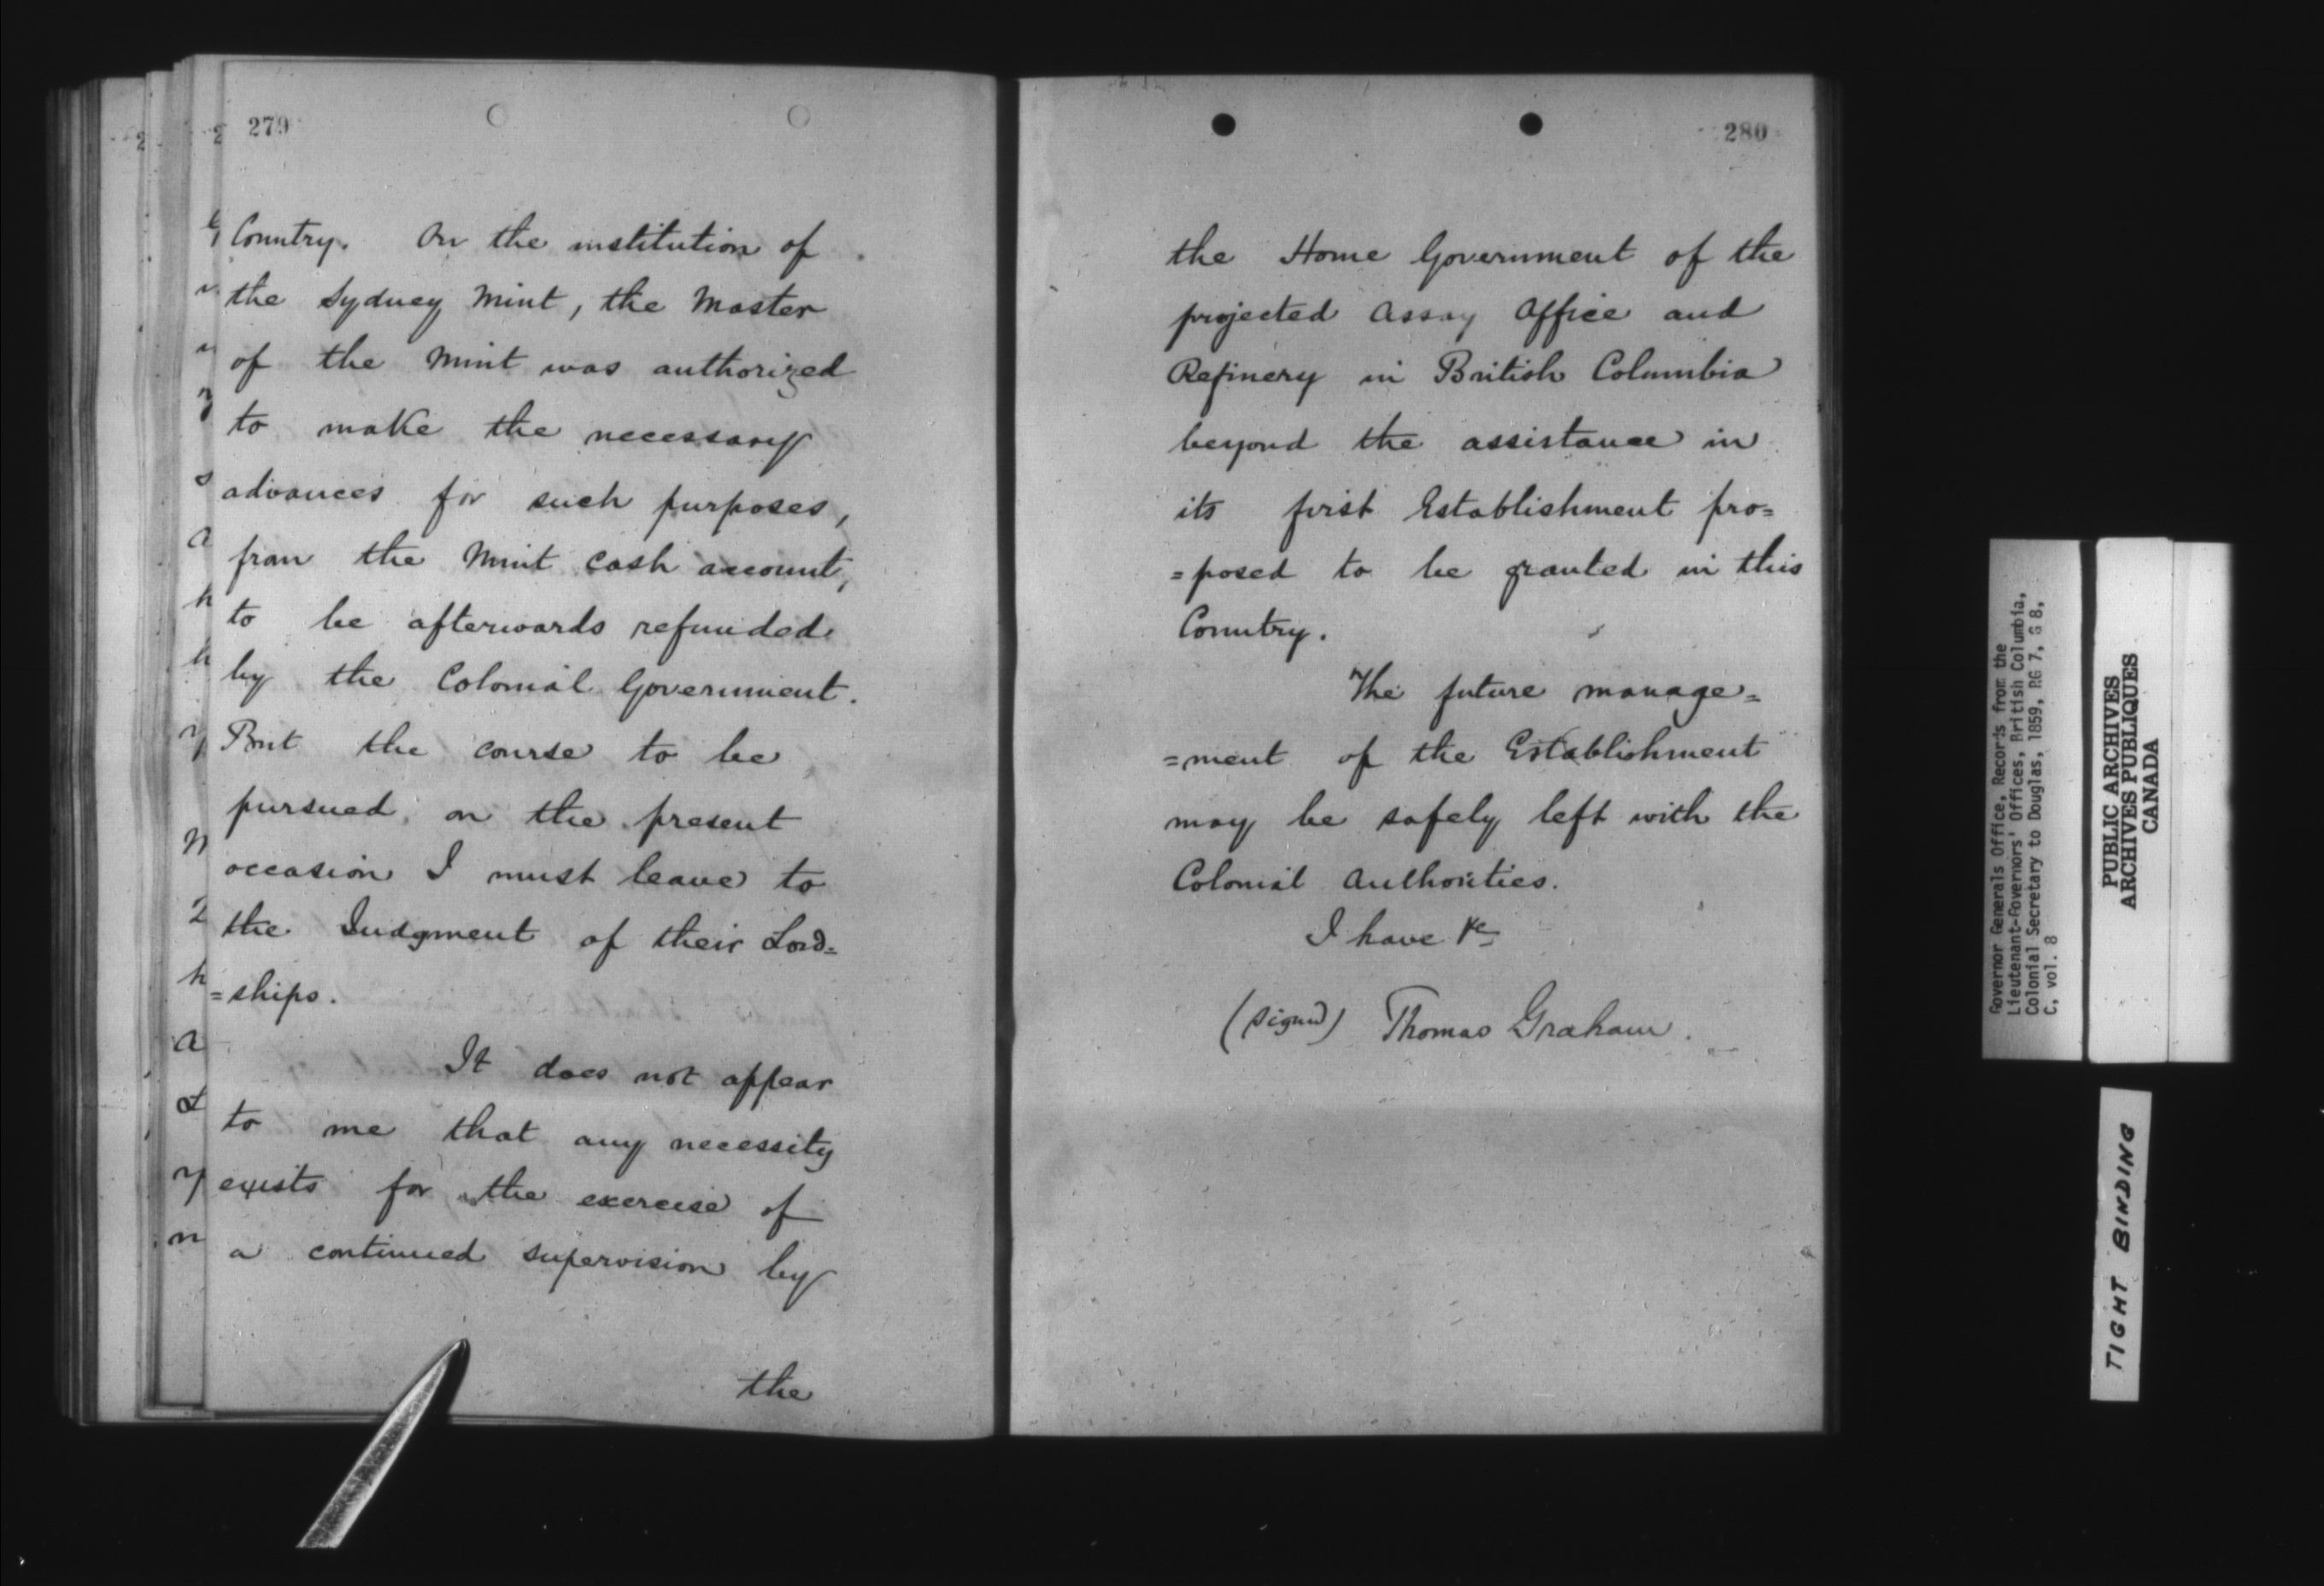 279
Country. On the institution of
the Sydney Mint, the Master
of the Mint was authorized
to make the necessary
advances for such purposes,
from the Mint cash account,
to be afterwards refunded
by the Colonial Government.
But the course to be
pursued on the present
occasion I must leave to
the Judgment of their Lord=
=ships.
It does not appear
to me that any necessity
exists for the exercise of
a continued supervision by
the
280
the Home Government of the
projected Assay Office and
Refinery in British Columbia
beyond the assistance in
its first Establishment pro=
=posed to be granted in this
Country.
The future manage=
=ment of the Establishment
may be safely left with the
Colonial Authorities.
I have &c
(signed) Thomas Graham.
Governor Generals Office, Records from the
Lieutenant-Governors' Offices, British Columbia,
Colonial Secretary to Douglas, 1859, RG 7, G 8,
C, vol. 8
PUBLIC ARCHIVES
ARCHIVES PUBLIQUES
CANADA
TIGHT BINDING